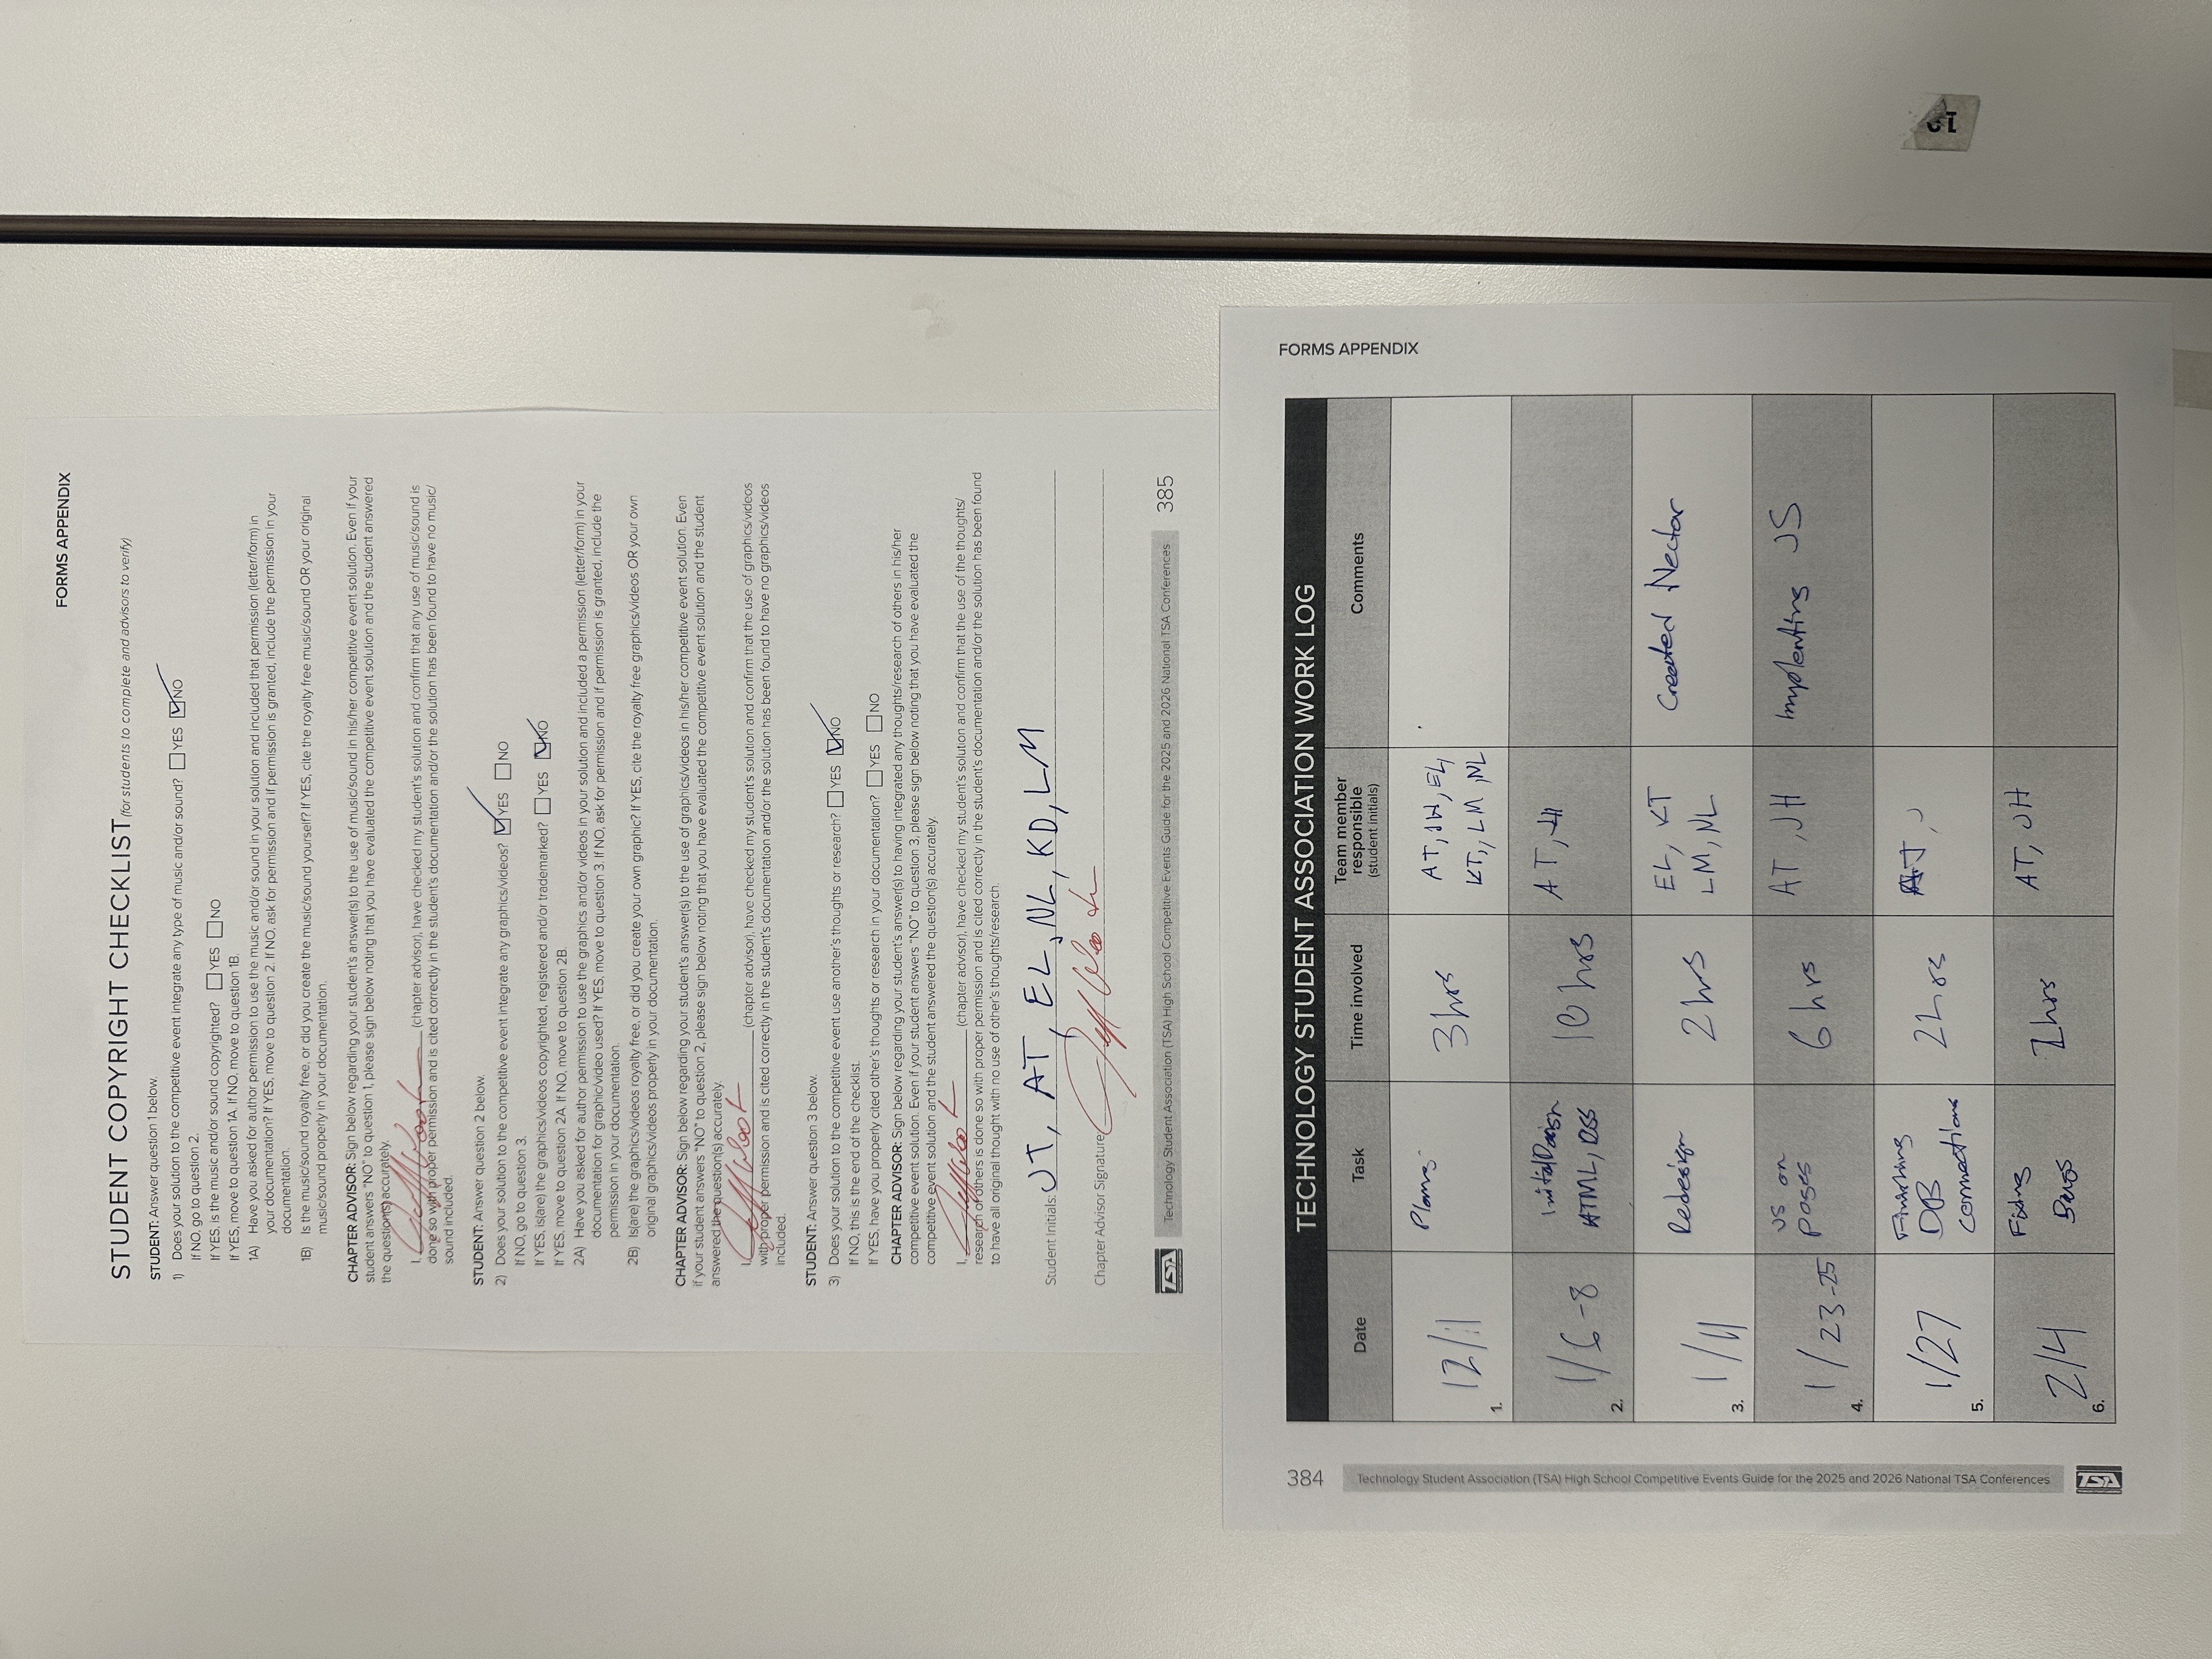 FORMS APPENDIX
STUDENT COPYRIGHT CHECKLIST (for students to complete and advisors to verify)
STUDENT: Answer question 1 below.
1) Does your solution to the competitive event integrate any type of music and/or sound? YES NO
If NO, go to question 2.
If YES, is the music and/or sound copyrighted? YES NO
If YES, move to question 1A. If NO, move to question 1B.
1A) Have you asked for author permission to use the music and/or sound in your solution and included that permission (letter/form) in
your documentation? If YES, move to question 2. If NO, ask for permission and if permission is granted, include the permission in your
documentation.
1B) Is the music/sound royalty free, or did you create the music/sound yourself? If YES, cite the royalty free music/sound OR your original
music/sound properly in your documentation.
CHAPTER ADVISOR: Sign below regarding your student's answer(s) to the use of music/sound in his/her competitive event solution. Even if your
student answers "NO" to question 1, please sign below noting that you have evaluated the competitive event solution and the student answered
the question(s) accurately.
I, (chapter advisor), have checked my student's solution and confirm that any use of music/sound is
done so with proper permission and is cited correctly in the student's documentation and/or the solution has been found to have no music/
sound included.
STUDENT: Answer question 2 below.
2) Does your solution to the competitive event integrate any graphics/videos? YES NO
If NO, go to question 3.
If YES, is(are) the graphics/videos copyrighted, registered and/or trademarked? YES NO
If YES, move to question 2A. If NO, move to question 2B.
2A) Have you asked for author permission to use the graphics and/or videos in your solution and included a permission (letter/form) in your
documentation for graphic/video used? If YES, move to question 3. If NO, ask for permission and if permission is granted, include the
permission in your documentation.
2B) Is(are) the graphics/videos royalty free, or did you create your own graphic? If YES, cite the royalty free graphics/videos OR your own
original graphics/videos properly in your documentation.
CHAPTER ADVISOR: Sign below regarding your student's answer(s) to the use of graphics/videos in his/her competitive event solution. Even
if your student answers "NO" to question 2, please sign below noting that you have evaluated the competitive event solution and the student
answered the question(s) accurately.
I, (chapter advisor), have checked my student's solution and confirm that the use of graphics/videos
with proper permission and is cited correctly in the student's documentation and/or the solution has been found to have no graphics/videos
included.
STUDENT: Answer question 3 below.
3) Does your solution to the competitive event use another's thoughts or research? YES NO
If NO, this is the end of the checklist.
If YES, have you properly cited other's thoughts or research in your documentation? YES NO
CHAPTER ADVISOR: Sign below regarding your student's answer(s) to having integrated any thoughts/research of others in his/her
competitive event solution. Even if your student answers "NO" to question 3, please sign below noting that you have evaluated the
competitive event solution and the student answered the question(s) accurately.
I, (chapter advisor), have checked my student's solution and confirm that the use of the thoughts/
research of others is done so with proper permission and is cited correctly in the student's documentation and/or the solution has been found
to have all original thought with no use of other's thoughts/research.
Student Initials: JT, AT, EL, NL, KD, LM
Chapter Advisor Signature: Jeff
TSA Technology Student Association (TSA) High School Competitive Events Guide for the 2025 and 2026 National TSA Conferences 385
FORMS APPENDIX
TECHNOLOGY STUDENT ASSOCIATION WORK LOG
Date Task Time involved Team member responsible (student initials) Comments
1. 12/11 3hrs AT, JH, EL,
KT,, LM, NL
2. 1/6-8 Initial
HTML, CSS 10 hrs AT, JH
3. 1/11 Redesign 2hrs EL, KT
LM, NL Created Nectar
4. 1/23-25 JS on
pages 6hrs AT, JH Implenting JS
5. 1/27 Finishing
DB
connections 2hrs
6. 2/4 Fixing
Bugs hrs AT, JH
384 Technology Student Association (TSA) High School Competitive Events Guide for the 2025 and 2026 National TSA Conferences TSA